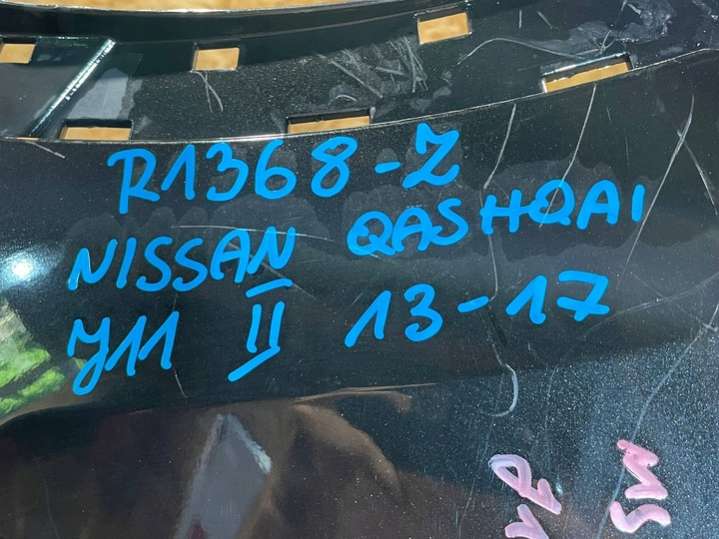 R1368-Z
NISSAN QASHQAI
J11 II 13-17